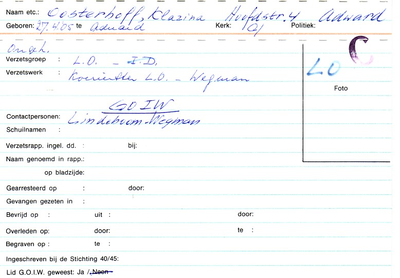 Naam etc.: Oosterhoff, Klazina Hoofdstr. 4 Aduard
Geboren: 27.4.05 te Aduard Kerk: Politiek:
Ongeh.
Verzetsgroep : L.O. - I.D.
Verzetswerk : Koerierster L.O. - Wegman
LO
C
Foto
GOIW
Contactpersonen: Lindeboom-Wegman
Schuilnaam :
Verzetsrapp. ingel. dd. : bij:
Naam genoemd in rapp.:
op bladzijde:
Gearresteerd op : door:
Gevangen gezeten in :
Bevrijd op : uit : door:
Overleden op: door: te :
Begraven op : te :
Ingeschreven bij de Stichting 40/45:
Lid G.O.I.W. geweest: Ja / Neen